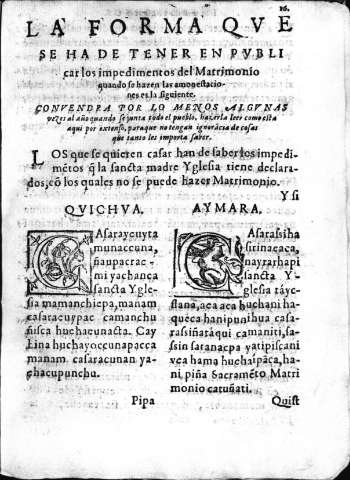 16.
LA FORMA QVE
SE HA DE TENER EN PVBLI
car los impedimentos del Matrimonio
quando se hazen las amonestacio-
nes es la siguiente.
CONVENDRA POR LO MENOS ALGVNAS
vezes al año quando se junta todo el pueblo, hazerla leer como esta
aqui por extenso, paraque no tengan ignorãcia de cosas
que tanto les importa saber.
LOS que se quieren casar han de saber los impedi-
métos q̃ la sancta madre Yglesia tiene declara-
dos, cõ los quales no se puede hazer Matrimonio.
Y si
QVICHVA.
CAsarayñyta
munaccuna,
ñaupacrac-
mi yachanca
sancta Ygle-
sia mamanchicpa, manam
casaracuypac camanchu
ñisca huchacunacta. Cay
huchayoccunapacca
manam casaracunan ya-
chacupunchu.
Pipa
AYMARA.
CAsarassiha
sirinacaca,
nayrarhapi
sancta Y-
glesia tayc-
stana, aca aca huchani ha-
queca hanipunihua casa-
rassiñatáqui camaniti, sa-
ssin satanacpa yatipiscani
vca hama huchapàca, ha-
ni, piña Sacraméto Matri
monio catuñati.
Quist